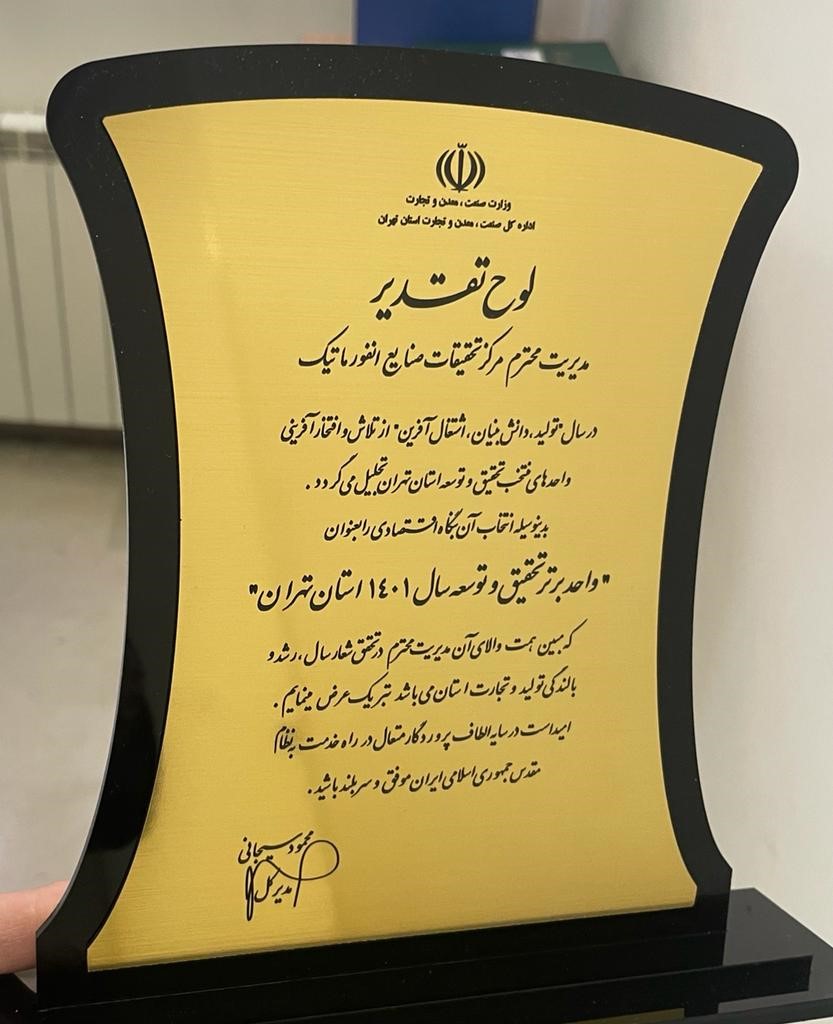 وزارت صنعت، معدن و تجارت
اداره کل صنعت، معدن و تجارت استان تهران
لوح تقدیر
مدیریت محترم مرکز تحقیقات صنایع انفورماتیک
در سال "تولید، دانش بنیان، اشتغال آفرین" از تلاش و افتخار آفرینی
واحدهای منتخب تحقیق و توسعه استان تهران تجلیل می گردد.
بدینوسیله انتخاب آن بنگاه اقتصادی را بعنوان
"واحد برتر تحقیق و توسعه سال ۱۴۰۱ استان تهران"
که مبین همت والای آن مدیریت محترم در تحقق شعار سال، رشد و
بالندگی تولید و تجارت استان می باشد تبریک عرض مینمایم.
امید است در سایه الطاف پروردگار متعال در راه خدمت به نظام
مقدس جمهوری اسلامی ایران موفق و سربلند باشید.
محمود سیجانی
مدیر کل